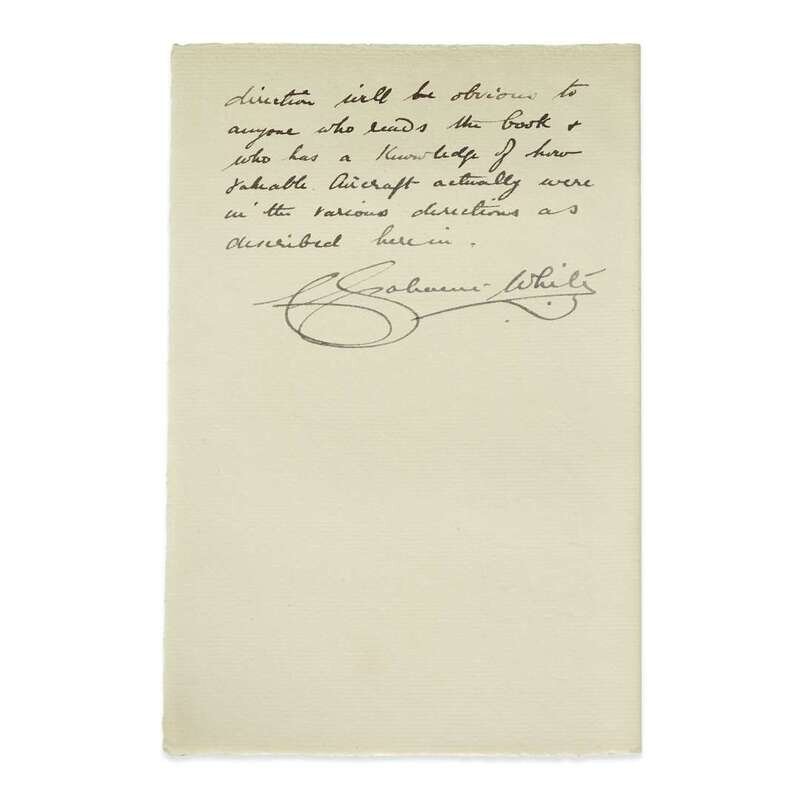 direction will be obvious to
anyone who reads the book &
who has a Knowledge of how
valuable Aircraft actually were
in the various directions as
described herein.
C Grahame-White